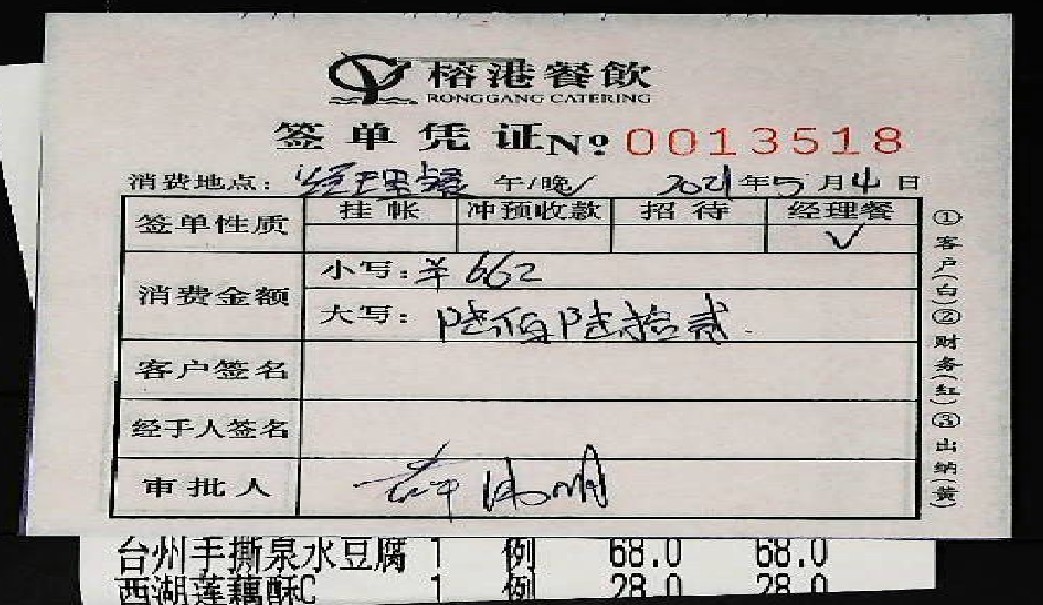 榕港餐飲
RONGGANG CATERING
签单凭证 No 0013518
消费地点: 经理餐 午/晚✓ 2021年5月4日
签单性质 挂帐 冲预收款 招待 经理餐
✓
消费金额 小写: ¥ 662
大写: 陆佰陆拾贰.
客户签名
经手人签名
审批人
①客户(白)②财务(红)③出纳(黄)
台州手撕泉水豆腐 1 例 68.0 68.0
西湖莲藕酥C 1 例 28.0 28.0